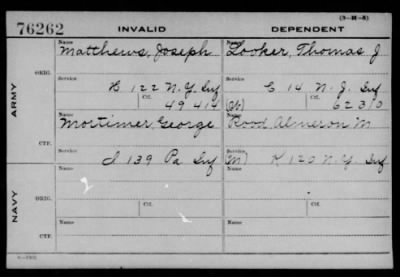 (3-M-5)
76262 INVALID DEPENDENT
Name Name
Matthews, Joseph Looker, Thomas J
ARMY
ORIG.
Service Service
B 122 N.Y. Inf C 14 N.J. Inf
Ctf. Ctf.
49414 (M) 62310
Name Name
Mortimer, George Rood Almeron M
CTF.
Service Service
I 139 Pa Inf (M) K 120 N.Y. Inf
NAVY
ORIG.
Name Name
Ctf. Ctf.
CTF.
Name Name